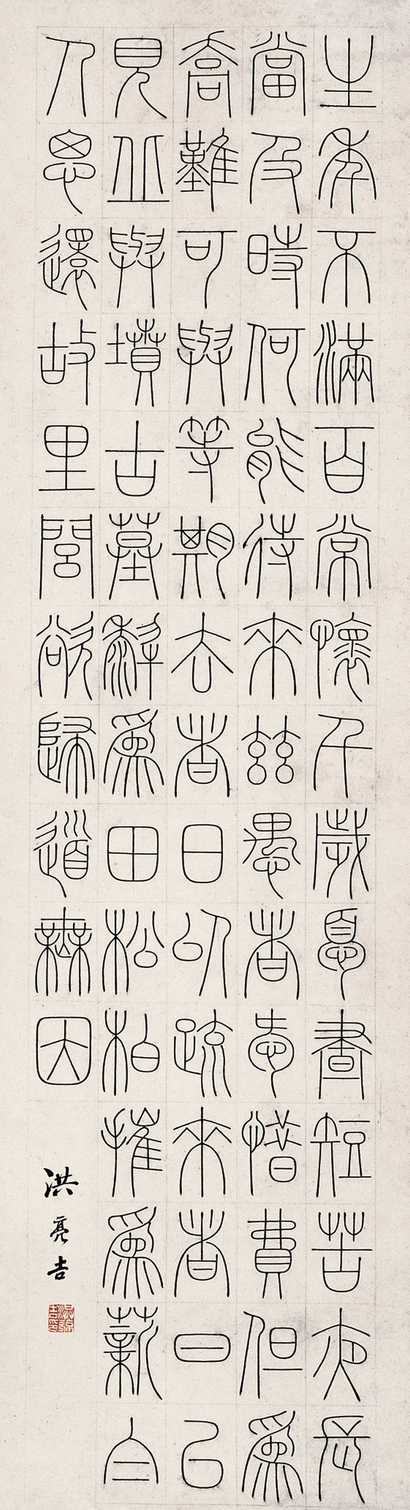 生年不滿百常懷千歲憂晝短苦夜長
當及時何能待來茲愚者愛惜費但為
喬難可與等期去者日以疏來者日已
見丘與墳古墓犂為田松柏摧為薪白
人思還故里閭欲歸道無因
洪亮吉